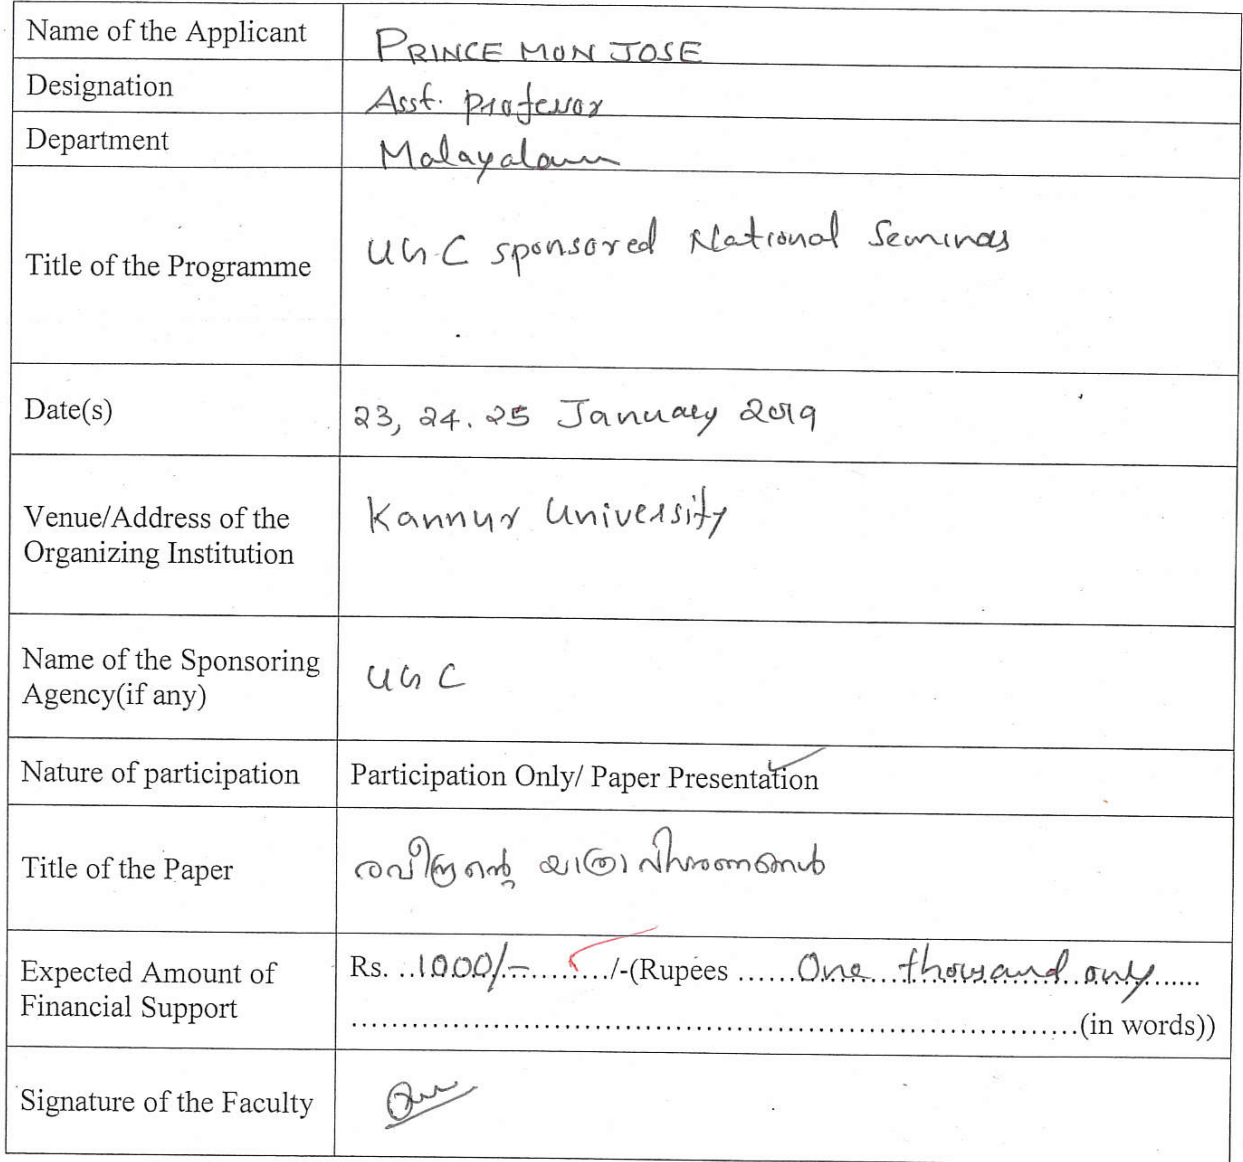 Name of the Applicant PRINCE MON JOSE
Designation Asst. Professor
Department Malayalam
Title of the Programme UGC sponsored National Seminar
Date(s) 23, 24. 25 January 2019
Venue/Address of the Kannur University
Organizing Institution
Name of the Sponsoring UGC
Agency(if any)
Nature of participation Participation Only/ Paper Presentation
Title of the Paper രവീന്ദ്രന്റെ യാത്രാ
Expected Amount of Rs. ..1000/-........./-(Rupees ......One thousand only......
Financial Support ........................................................................(in words))
Signature of the Faculty